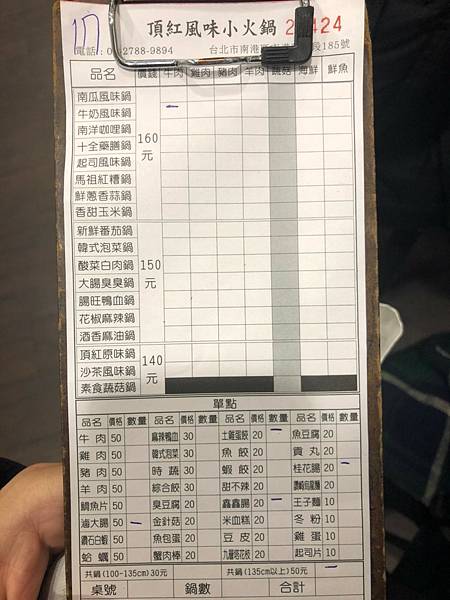 17 頂紅風味小火鍋
電話： 2788-9894 台北市南港 段185號
品名 價錢 牛肉 雞肉 豬肉 羊肉 蔬菇 海鮮 鮮魚
南瓜風味鍋
牛奶風味鍋
南洋咖哩鍋
十全藥膳鍋
起司風味鍋
馬祖紅糟鍋
鮮蔥香蒜鍋
香甜玉米鍋
160元
新鮮番茄鍋
韓式泡菜鍋
酸菜白肉鍋
大腸臭臭鍋
腸旺鴨血鍋
花椒麻辣鍋
酒香麻油鍋
150元
頂紅原味鍋
沙茶風味鍋
素食蔬菇鍋
140元
單點
品名 價格 數量 品名 價格 數量 品名 價格 數量 品名 價格 數量
牛肉 50 麻辣鴨血 30 土雞蛋餃 20 魚豆腐 20
雞肉 50 韓式泡菜 30 魚餃 20 貢丸 20
豬肉 50 時蔬 30 蝦餃 20 桂花腸 20
羊肉 50 綜合餃 30 甜不辣 20 讚岐烏龍麵 20
鯛魚片 50 臭豆腐 20 鑫鑫腸 20 王子麵 10
滷大腸 50 金針菇 20 米血糕 20 冬粉 10
鑽石白蝦 50 魚包蛋 20 豆皮 20 雞蛋 10
蛤蠣 50 蟹肉棒 20 九層塔花枝 20 起司片 10
共鍋(100-135cm)30元 共鍋(135cm以上)50元
桌號 鍋數 合計